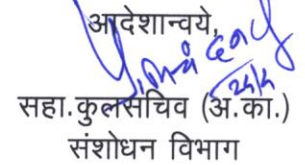 आदेशान्वये,
सहा.कुलसचिव (अ.का.)
संशोधन विभाग